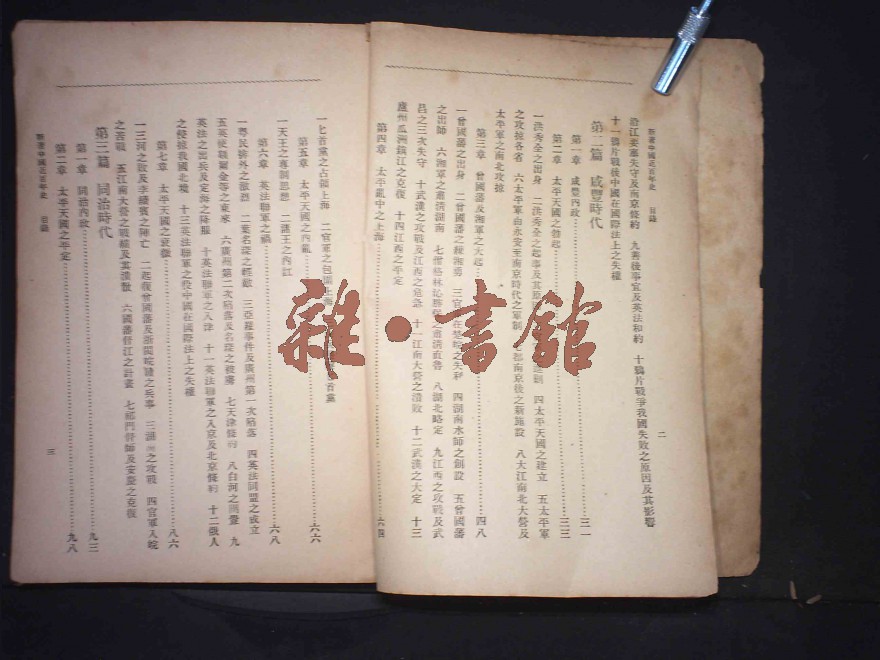 新著中國近百年史 目錄
二
沿江要塞失守及南京條約 九善後事宜及英法和約 十鴉片戰爭我國失敗之原因及其影響
十一鴉片戰後中國在國際法上之失權
第二篇 咸豐時代
第一章 咸豐內政 三一
第二章 太平天國之發起 三三
一洪秀全之出身 二洪秀全之起事及其 四太平天國之建立 五太平軍
之攻掠各省 六太平軍由永安至南京時代之軍制 都南京後之新施設 八大江南北大營及
太平軍之南北攻掠
第三章 曾國藩及湘軍之大起 四八
一曾國藩之出身 二曾國藩之練湘勇 三官 在楚皖之失利 四湖南水師之創設 五曾國藩
之出師 六湘軍之肅清湖南 七僧格林沁 之肅清直魯 八湖北略定 九江西之攻戰及武
昌之三次失守 十武漢之攻戰及江西之危急 十一江南大營之潰敗 十二武漢之大定 十三
廬州瓜洲鎮江之克復 十四江西之平定
第四章 太平亂中之上海 六四
一匕首黨之占領上海 二官軍之包圍上海 首黨
第五章 太平天國之內亂 六六
一天王之專制思想 二諸王之內訌
第六章 英法聯軍之禍 六八
一粵民排外之激烈 二葉名琛之輕敵 三亞羅事件及廣州第一次陷落 四英法同盟之成立
五英使額爾金等之東來 六廣州第二次陷落及名琛之被擄 七天津條約 八白河之 九
英法之出兵及定海之降服 十英法聯軍之入津 十一英法聯軍之入京及北京條約 十二俄人
之侵掠我國北境 十三英法聯軍之役中國在國際法上之失權
第七章 太平天國之衰微 八六
一三河之敗及李續賓之陣亡 二起復曾國藩及浙閩皖贛之兵事 三湖 之攻戰 四官軍入皖
之苦戰 五江南大營之戰績及其潰散 六國藩督江之計畫 七祁門督師及安慶之克復
第三篇 同治時代
第一章 同治內政 九三
第二章 太平天國之平定 九八
新著中國近百年史 目錄
三
雜·書館